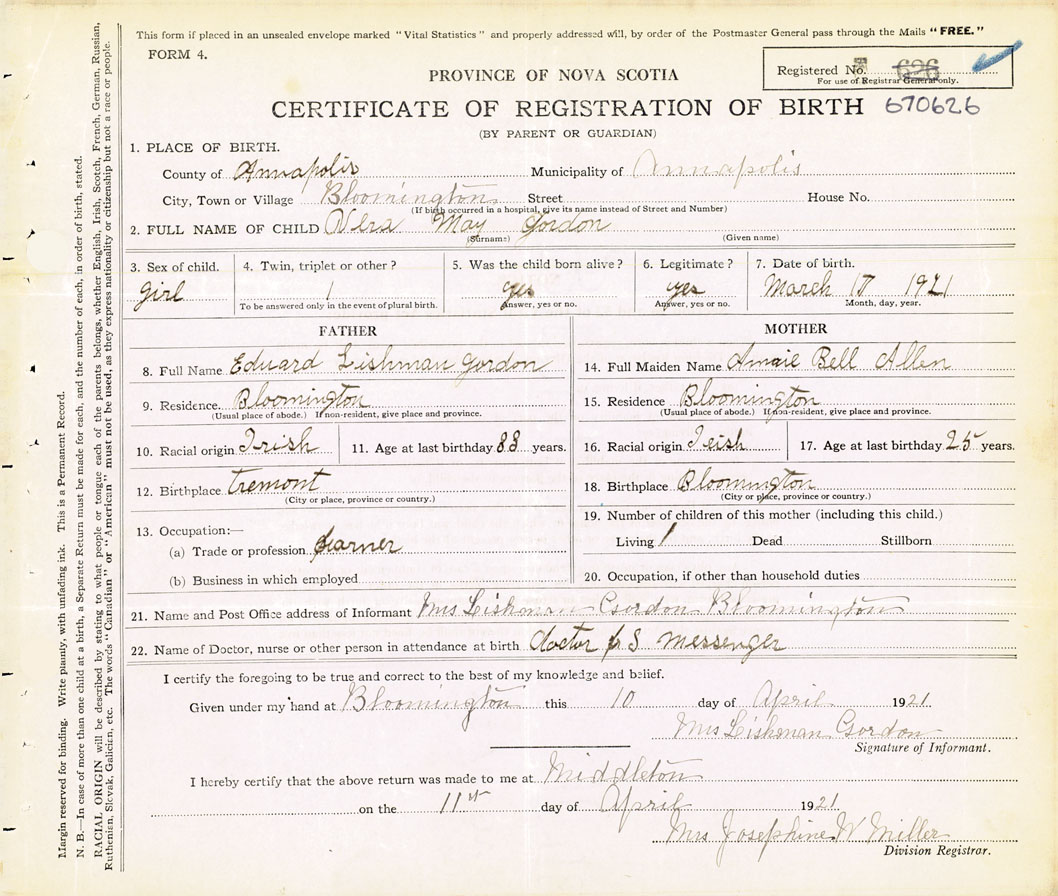 This form if placed in an unsealed envelope marked "Vital Statistics" and properly addressed will, by order of the Postmaster General pass through the Mails "FREE."
FORM 4.
Registered No. 626
For use of Registrar General only.
PROVINCE OF NOVA SCOTIA
CERTIFICATE OF REGISTRATION OF BIRTH 670626
(BY PARENT OR GUARDIAN)
1. PLACE OF BIRTH.
County of Annapolis Municipality of Annapolis
City, Town or Village Bloomington Street House No.
(If birth occurred in a hospital, give its name instead of Street and Number)
2. FULL NAME OF CHILD Vera May Gordon
(Surname) (Given name)
3. Sex of child. 4. Twin, triplet or other? 5. Was the child born alive? 6. Legitimate? 7. Date of birth.
girl 1 yes yes March 17 1921
To be answered only in the event of plural birth. Answer, yes or no. Answer, yes or no. Month, day, year.
FATHER
8. Full Name Eduard Lishman Gordon
9. Residence. Bloomington
(Usual place of abode.) If non-resident, give place and province.
10. Racial origin Irish 11. Age at last birthday 38 years.
12. Birthplace tremont
(City or place, province or country.)
13. Occupation:—
(a) Trade or profession farmer
(b) Business in which employed
MOTHER
14. Full Maiden Name Bell Allen
15. Residence Bloomington
(Usual place of abode.) If non-resident, give place and province.
16. Racial origin Irish 17. Age at last birthday 25 years.
18. Birthplace Bloomington
(City or place, province or country.)
19. Number of children of this mother (including this child.)
Living 1 Dead Stillborn
20. Occupation, if other than household duties
21. Name and Post Office address of Informant Mrs Lishman Gordon Bloomington
22. Name of Doctor, nurse or other person in attendance at birth doctor S Messenger
I certify the foregoing to be true and correct to the best of my knowledge and belief.
Given under my hand at Bloomington this 10 day of April 1921.
Mrs Lishman Gordon
Signature of Informant.
I hereby certify that the above return was made to me at Middleton
on the 11st day of April 1921
Mrs Josephine W Miller
Division Registrar.
Margin reserved for binding. Write plainly, with unfading ink. This is a Permanent Record.
N. B.—In case of more than one child at a birth, a Separate Return must be made for each, and the number of each, in order of birth, stated.
RACIAL ORIGIN will be described by stating to what people or tongue each of the parents belongs, whether English, Irish, Scotch, French, German, Russian,
Ruthenian, Slovak, Galician, etc. The words "Canadian" or "American" must not be used, as they express nationality or citizenship but not a race or people.